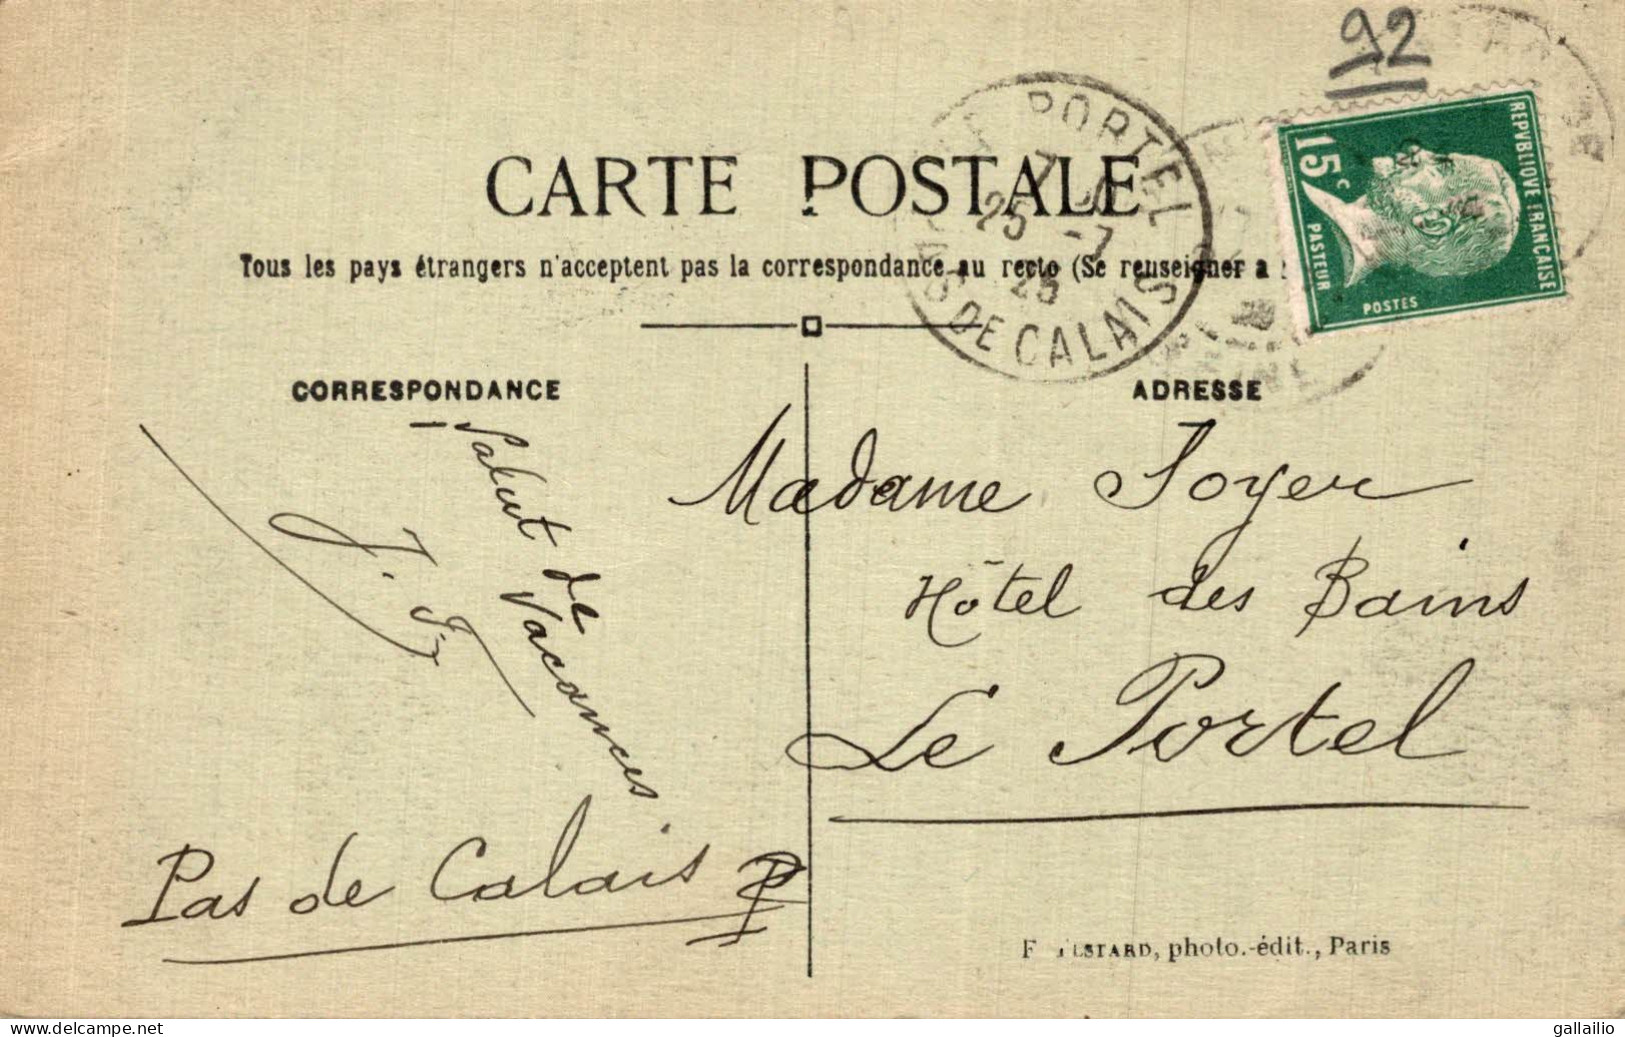 92
REPVBLIQVE FRANCAISE
15c
PASTEUR
POSTES
LE PORTEL
7
25 -7
25
PAS DE CALAIS
CARTE POSTALE
Tous les pays étrangers n'acceptent pas la correspondance au recto (Se renseigner a
CORRESPONDANCE
ADRESSE
Salut de
Vacances
Madame Soyer
Hôtel des Bains
Le Portel
Pas de Calais
photo.-édit., Paris
delcampe.net
website
gallailio